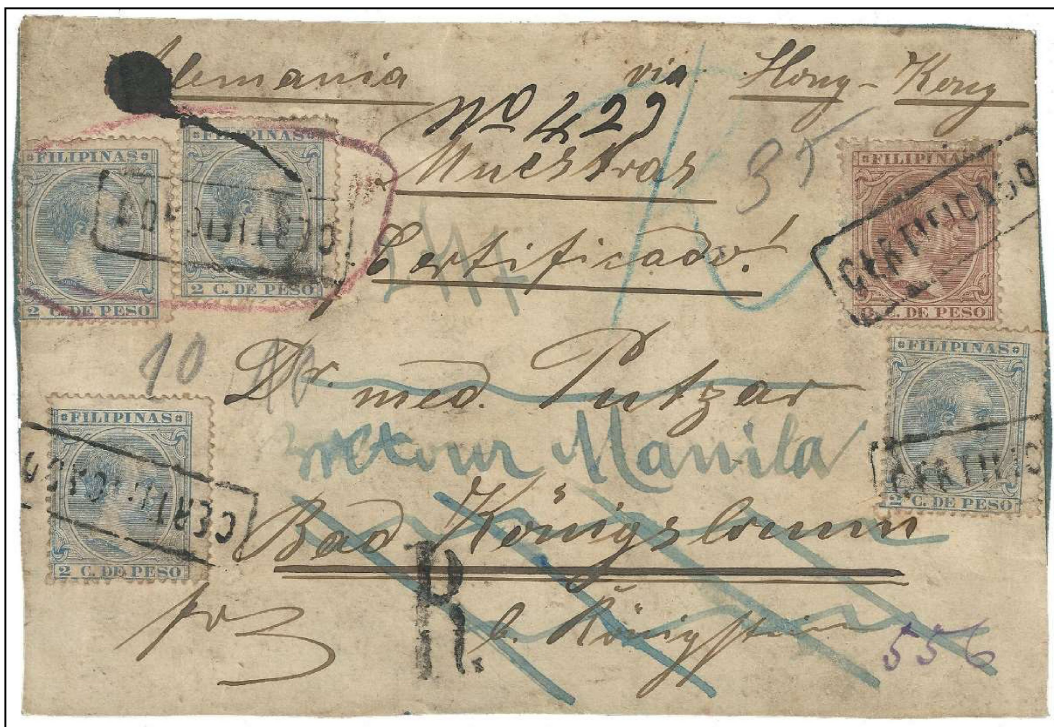 Alemania via Hong-Kong
No 429
Muestras
35
Certificado!
FILIPINAS
2 C. DE PESO
FILIPINAS
2 C. DE PESO
CERTIFICADO
FILIPINAS
C. DE PESO
CERTIFICADO
10 10
Dr. med. Putzar
FILIPINAS
2 C. DE PESO
CERTIFIC
retour Manila
FILIPINAS
2 C. DE PESO
CERTIFICADO
Bad Königsbrunn
R.
b. Königstein
556